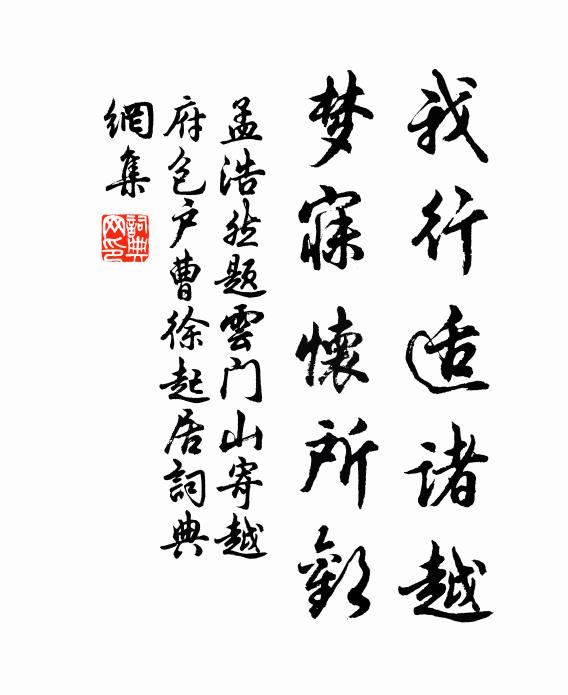 我行适诸越
梦寐怀所欢
孟浩然题雲门山寄越
府包户曹徐起居詞典
網集
詞典
网印